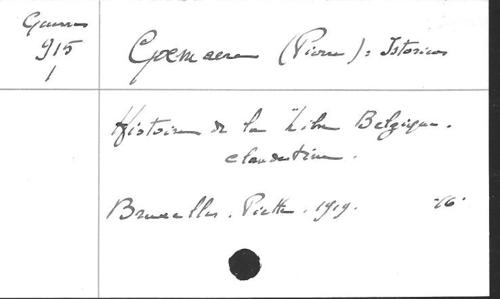 Guerres
915
1
Goemaere (Pierre) : Istoricos
Histoire de la Libre Belgique.
clandestine.
Bruxelles. Piette. 1919. -16-